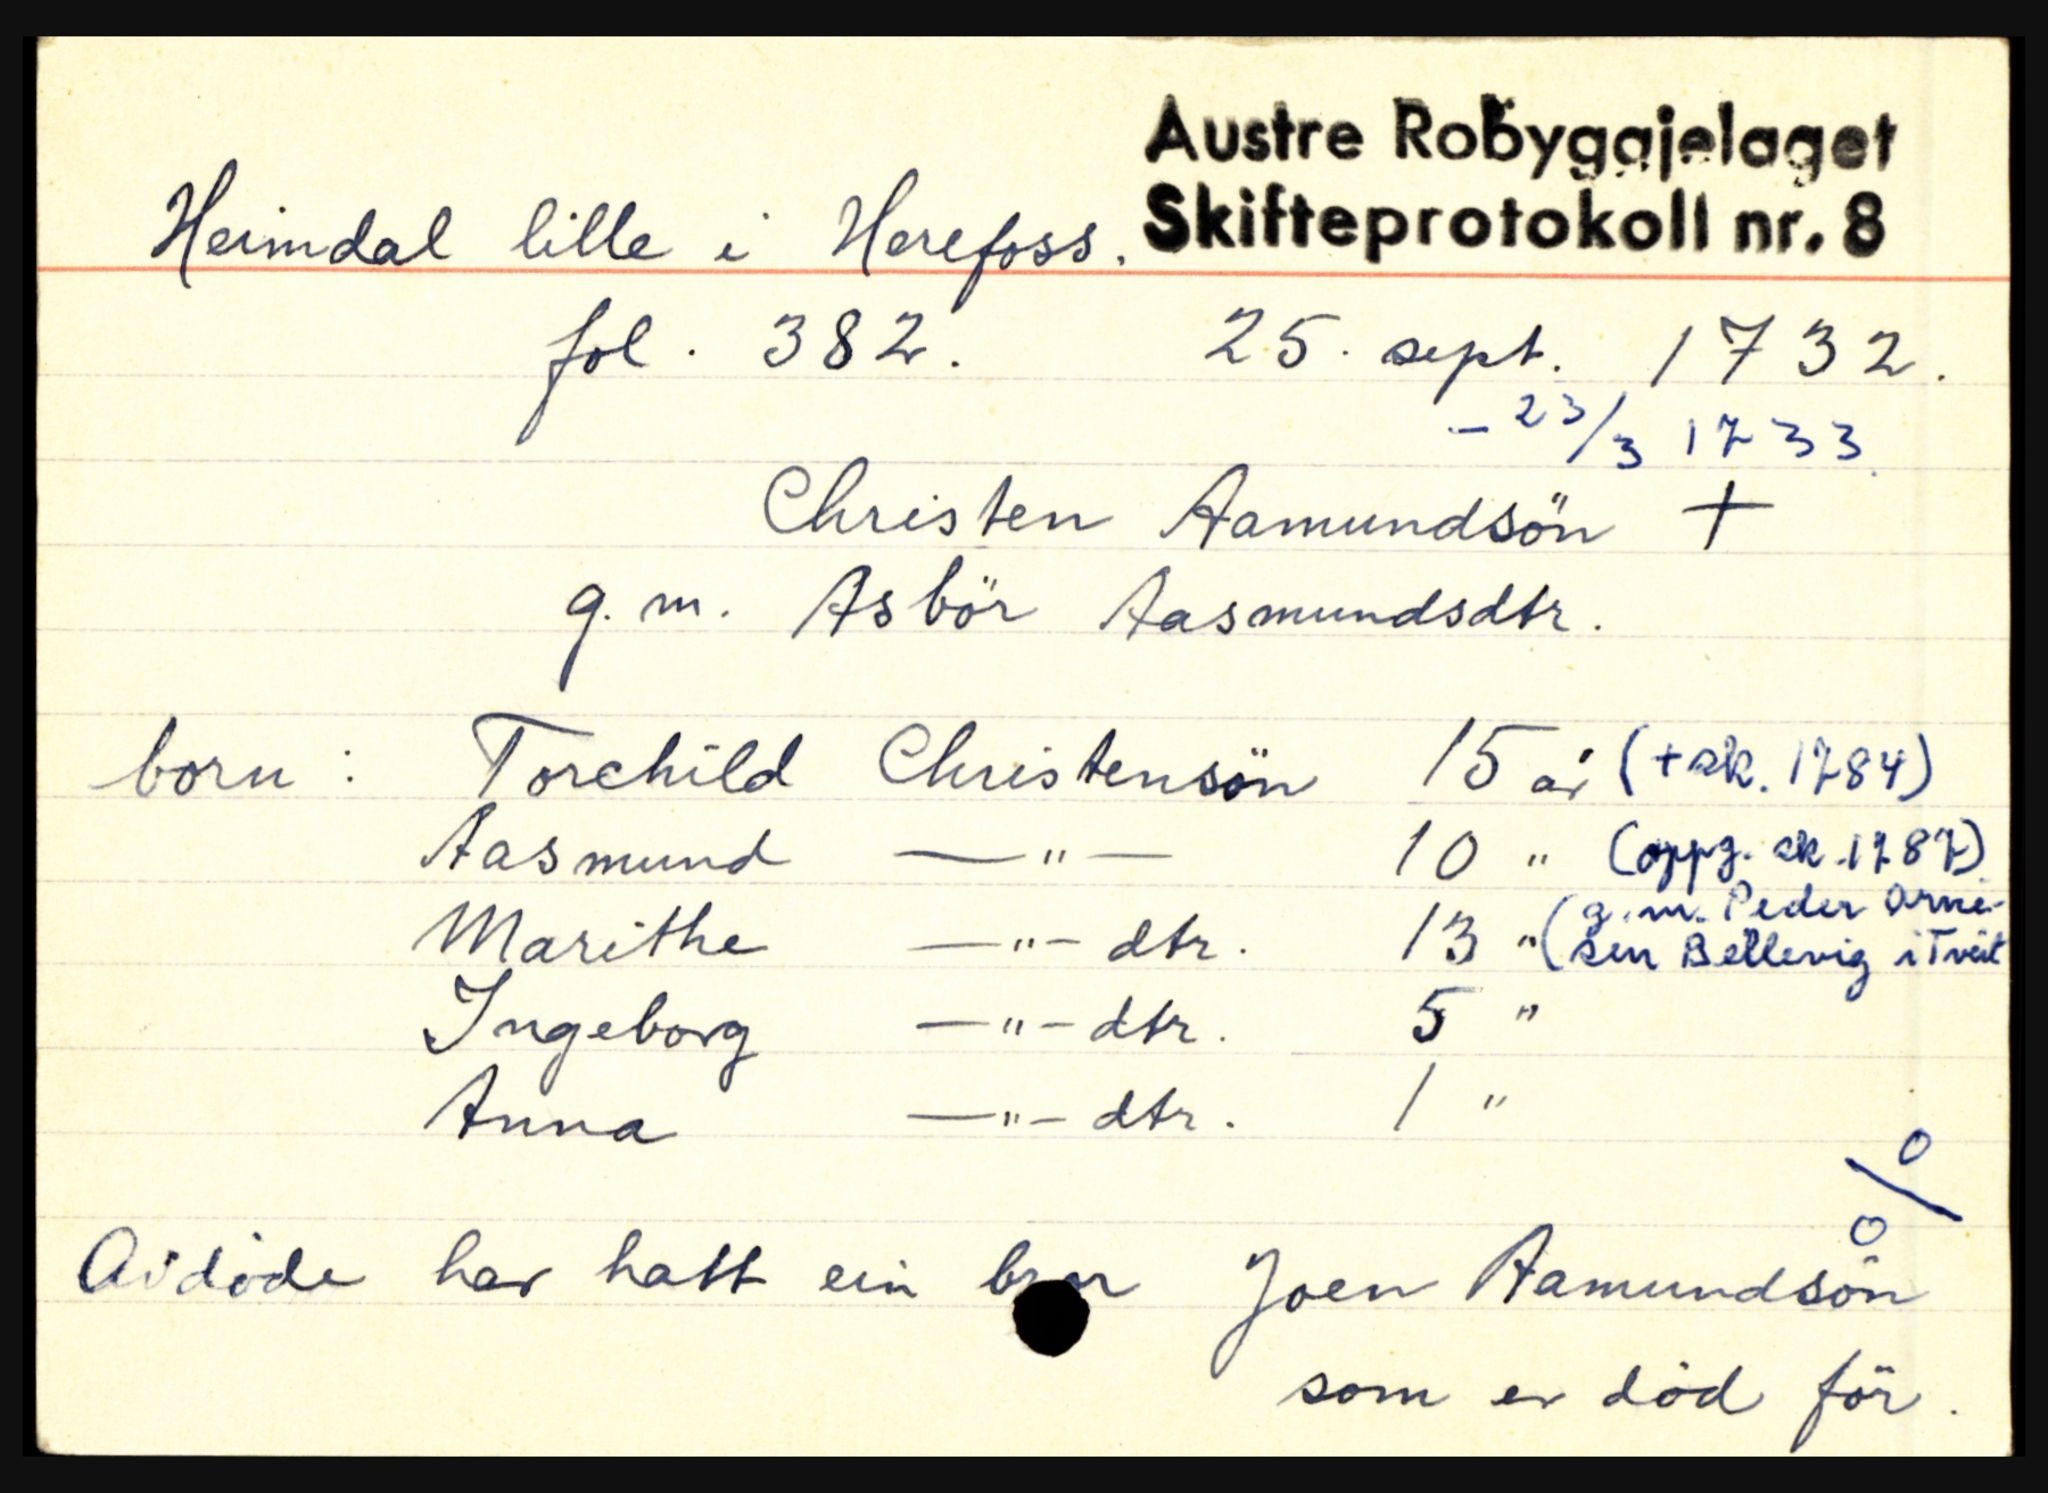 Austre Robyggjelaget
Skifteprotokoll nr. 8
Heimdal lille i Herefoss.
fol. 382. 25. sept. 1732.
- 23/3 1733.
Christen Aamundsön +
g. m. Asbör Aasmundsdtr.
born : Torchild Christensön 15 år (+ sk. 1784)
Aasmund —"— 10 " (oppg. sk. 1787)
Marithe —"— dtr. 13 " (g.m. Peder Arne-
sen Bellevig i Tveit
Ingeborg —"— dtr. 5 "
Anna —"— dtr. 1 "
0/0
Avdöde har hatt ein bror Joen Aamundsön
som er död för.